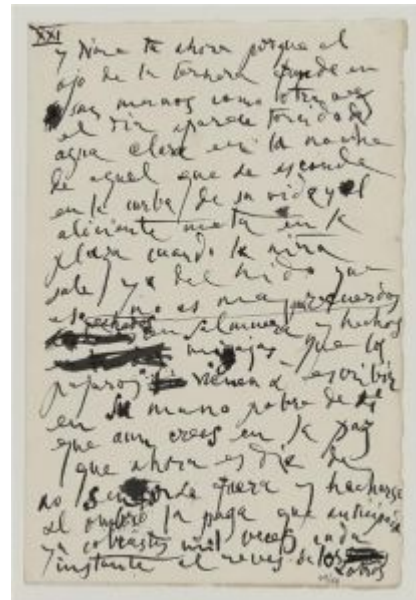 XXI
y dime tú ahora porque el
ojo de la ternera puede en
sus manos como otra
el día aparece torcido de
agua clara en la noche
de aquel que se esconde
en la curba de su vida y el
aliciente mata en la
plaza cuando la niña
sale y ya del nido que
no es mas por
en salmuera y hechos
migajas que los
pajaros vienen a escribir
en su mano pobre de ti
que aun crees en la paz
que ahora es dia de
no fuera y hacharse
al ombro la paga que
ya cobrastes mil veces cada
instante al reves de los
otros